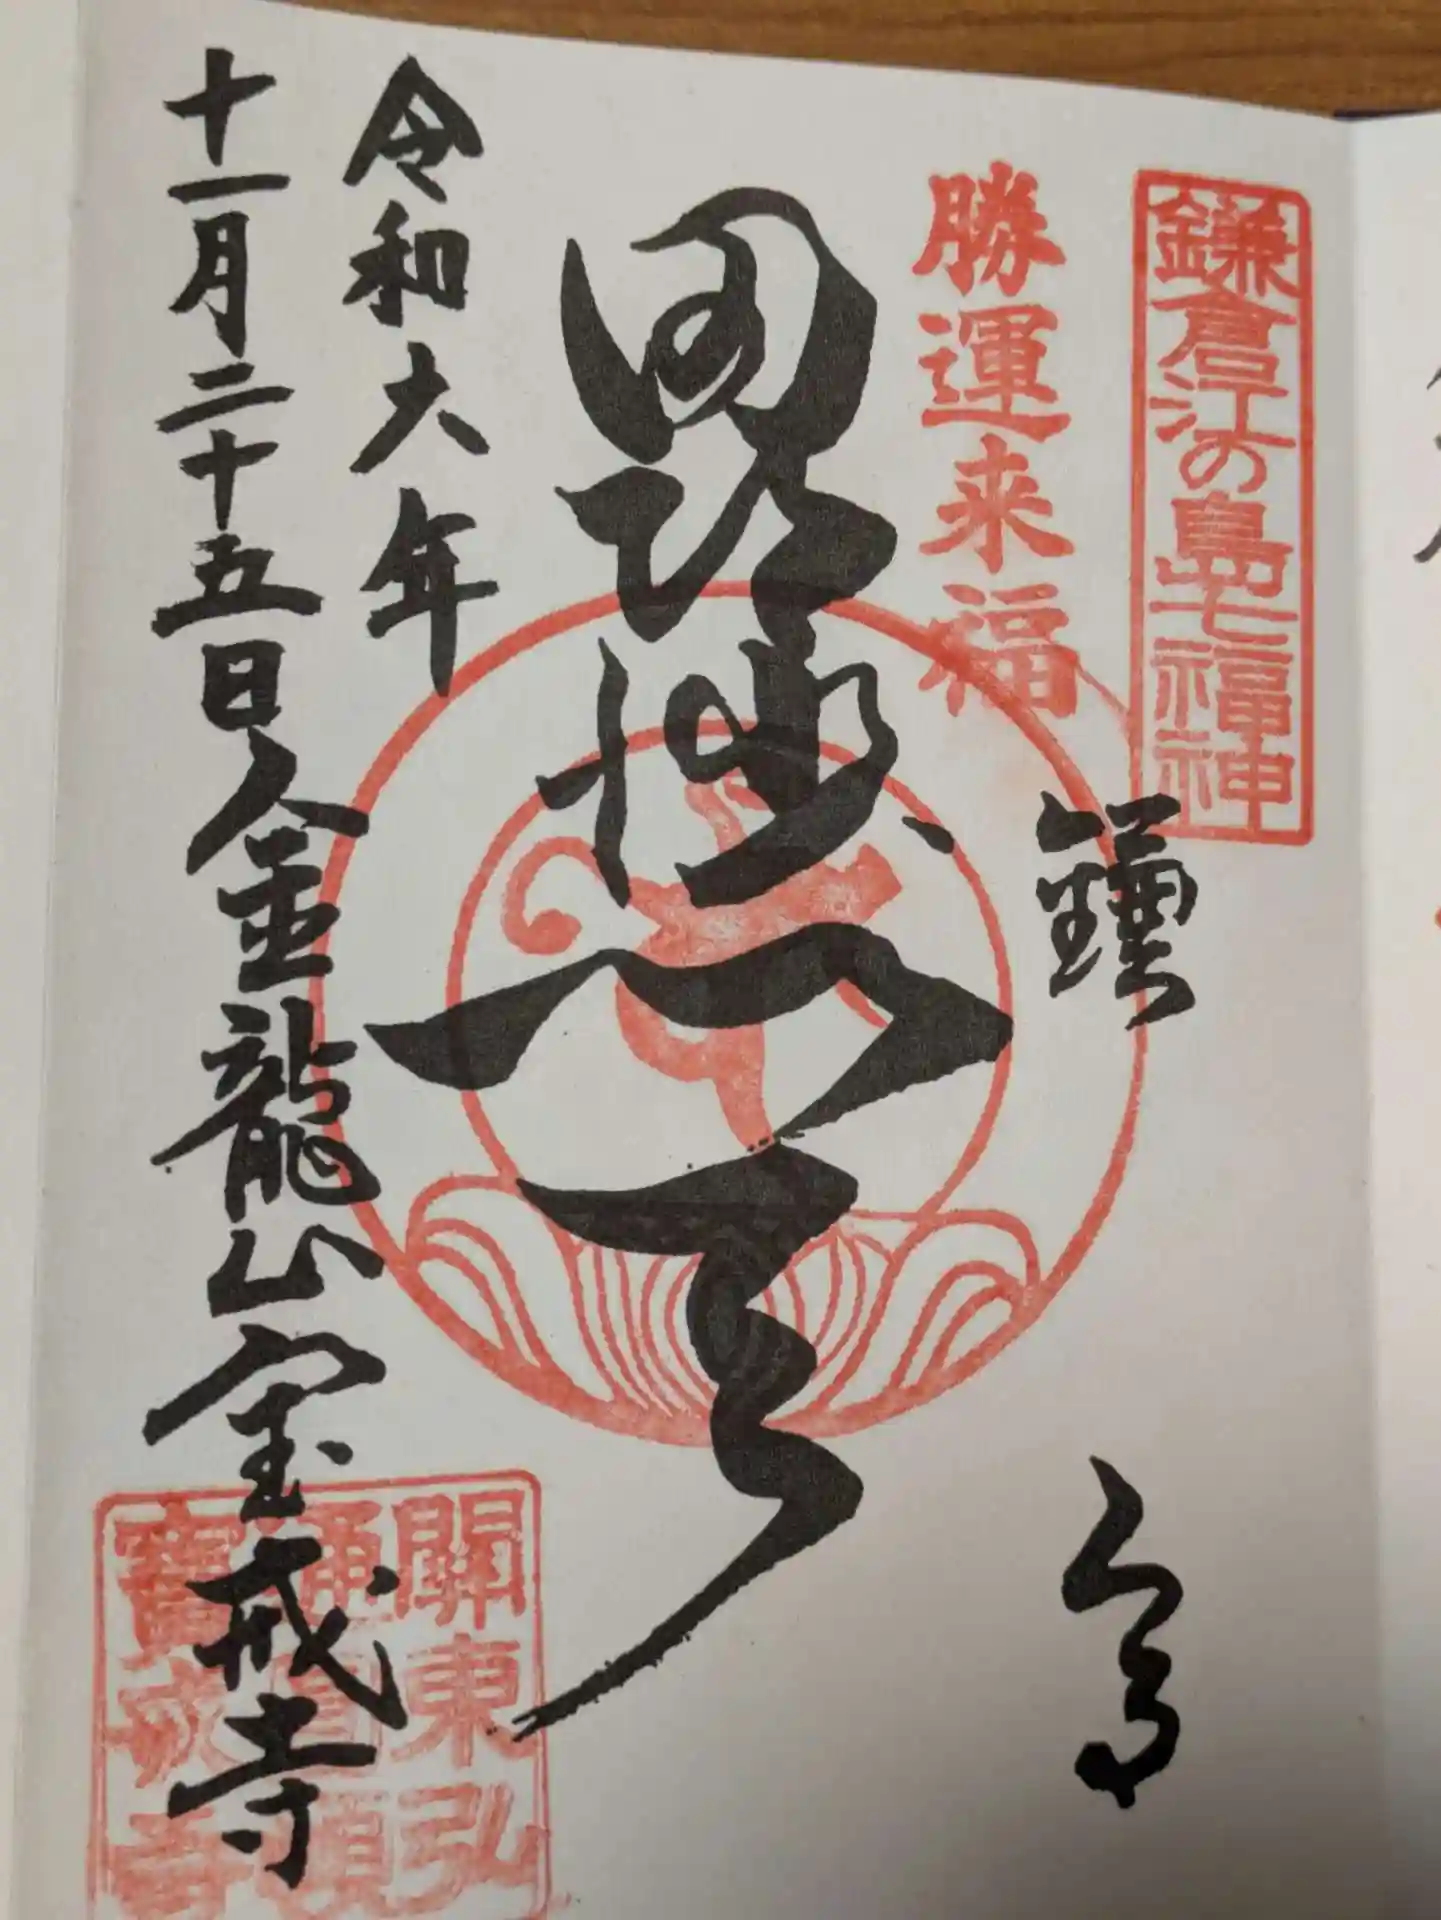 鎌倉江の島七福神
勝運来福
鎌倉
毘沙門天
令和六年
十一月二十五日 金龍山宝戒寺
關東弘
通圓頓
寶戒寺